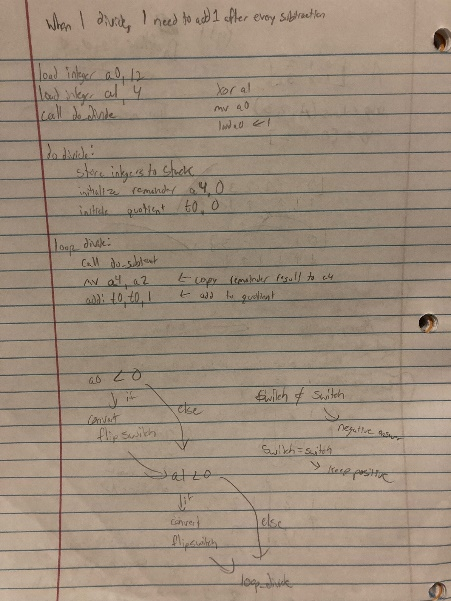 When I divide, I need to add 1 after every subtraction
load integer a0, 12
load integer a1, 4
call do_divide
xor a1
mv a0
do divide:
store integers to stack
initialize remainder a4, 0
initiate quotient t0, 0
loop_divide:
call do_subtract
mv a4, a2 ← copy remainder result to a4
addi t0, t0, 1 ← add to quotient
a0 < 0
↓ if
convert
flipswitch
else
a1 < 0
↓ if
convert
flipswitch
else
loop_divide
Switch ≠ switch
negative answer
Switch = switch
keep positive